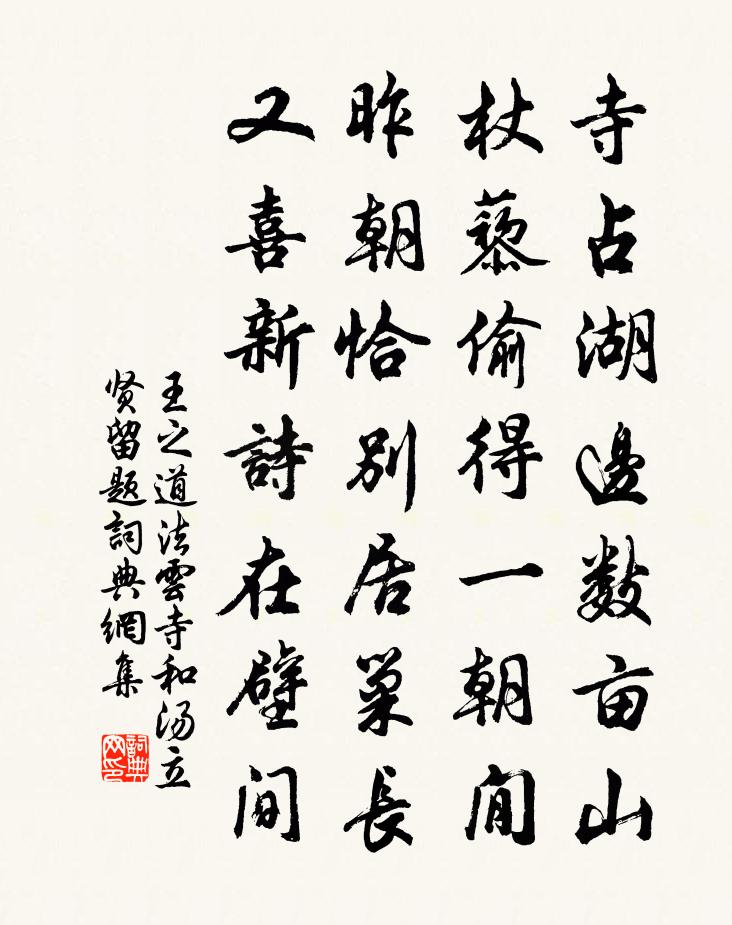 寺占湖邊数亩山
杖藜偷得一朝闲
昨朝恰别居巢長
又喜新詩在壁间
王之道法雲寺和汤立
贤留题詞典網集
詞典
网印